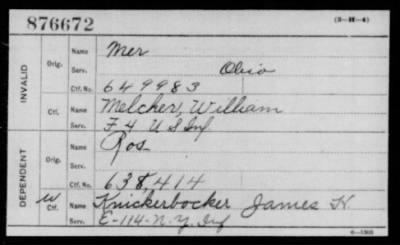 876672 (3-H-4)
INVALID Orig. Name Mer
Serv. Ohio
Ctf. No. 649983
Ctf. Name Melcher, William
Serv. F 4 U S Inf
DEPENDENT Orig. Name Ros
Serv.
Ctf. No. 638,414
W Ctf. Name Knickerbocker James H.
Serv. E-114-N.Y. Inf